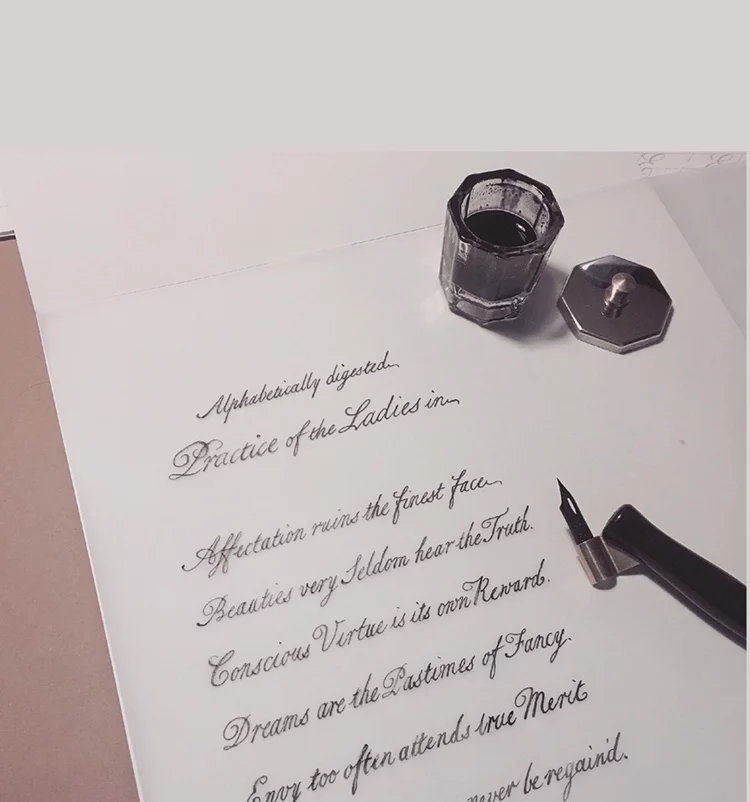 Alphabetically digested
Practice of the Ladies in
Affectation ruins the finest face
Beauties very Seldom hear the Truth.
Conscious Virtue is its own Reward.
Dreams are the Pastimes of Fancy.
Envy too often attends true Merit
never be regain'd.